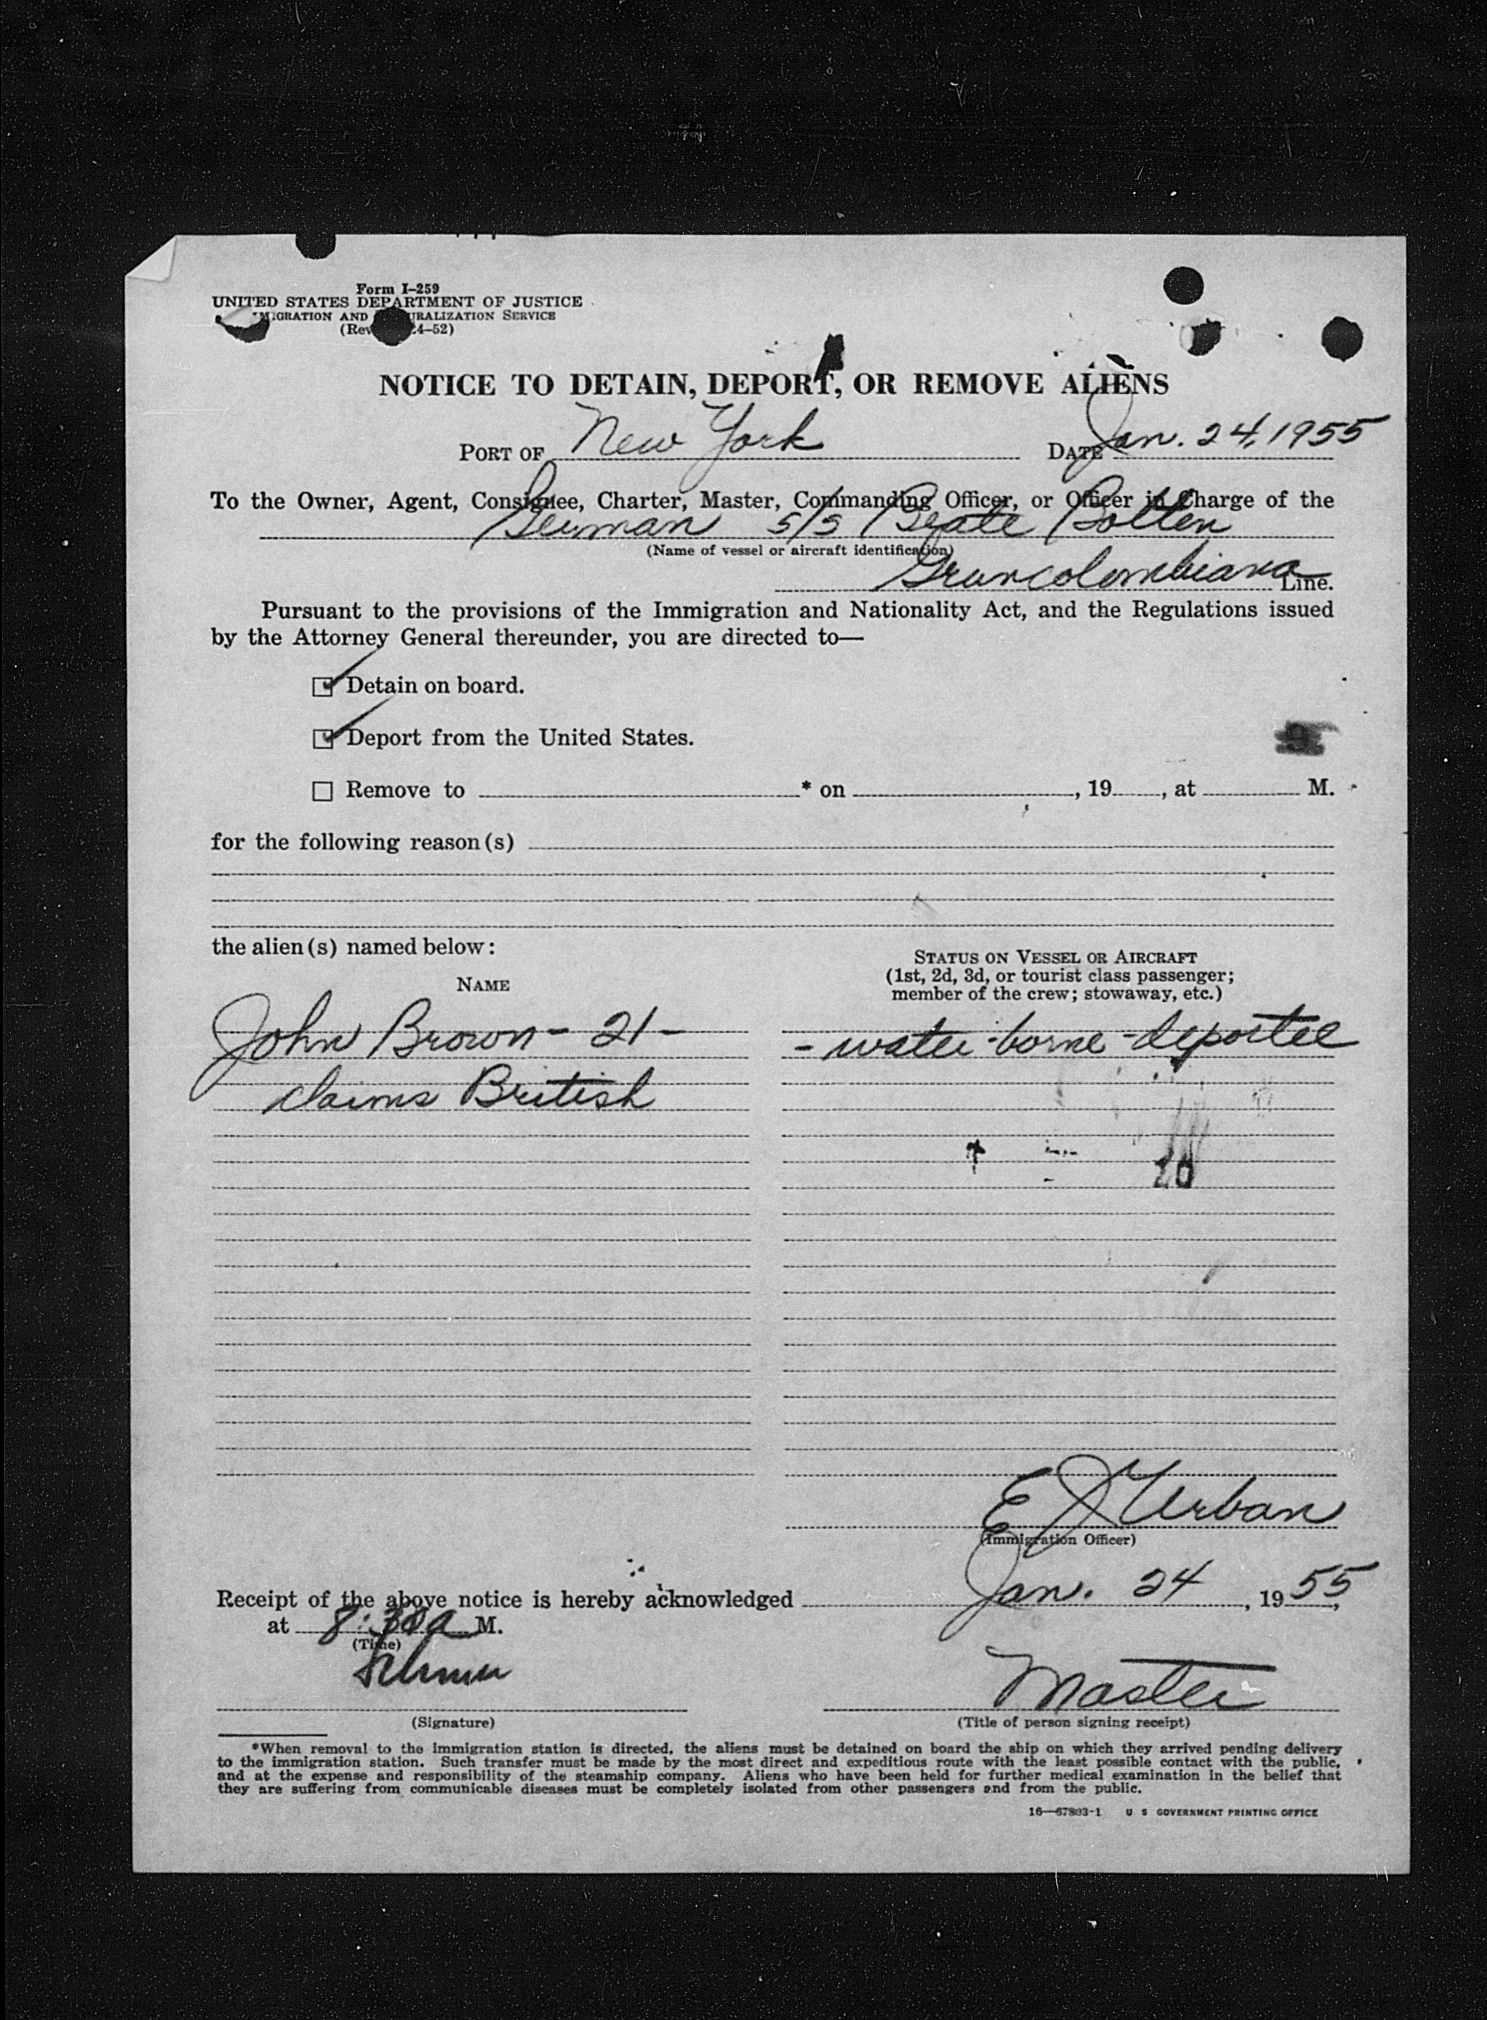 Form I-259
UNITED STATES DEPARTMENT OF JUSTICE
IMMIGRATION AND NATURALIZATION SERVICE
(Rev. 4-52)
NOTICE TO DETAIN, DEPORT, OR REMOVE ALIENS
PORT OF New York DATE Jan. 24, 1955
To the Owner, Agent, Consignee, Charter, Master, Commanding Officer, or Officer in Charge of the
German s/s Beate Bolten
(Name of vessel or aircraft identification)
Grancolombiana Line.
Pursuant to the provisions of the Immigration and Nationality Act, and the Regulations issued
by the Attorney General thereunder, you are directed to—
Detain on board.
Deport from the United States.
Remove to * on , 19 , at M.
for the following reason(s)
the alien(s) named below:
NAME
STATUS ON VESSEL OR AIRCRAFT
(1st, 2d, 3d, or tourist class passenger;
member of the crew; stowaway, etc.)
John Brown - 21 - - water-borne-deportee
claims British
E J Urban
(Immigration Officer)
Receipt of the above notice is hereby acknowledged Jan. 24, 1955,
at 8:30a M.
(Time)
Master
(Signature) (Title of person signing receipt)
*When removal to the immigration station is directed, the aliens must be detained on board the ship on which they arrived pending delivery
to the immigration station. Such transfer must be made by the most direct and expeditious route with the least possible contact with the public,
and at the expense and responsibility of the steamship company. Aliens who have been held for further medical examination in the belief that
they are suffering from communicable diseases must be completely isolated from other passengers and from the public.
16—67803-1 U S GOVERNMENT PRINTING OFFICE